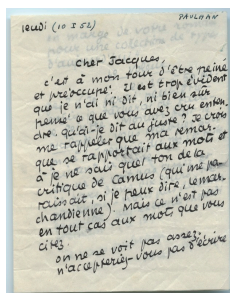 jeudi (10 I 52)
PAULHAN
cher Jacques,
c'est à mon tour d'être peiné
et préoccupé. Il est trop évident
que je n'ai ni dit, ni bien sûr
pensé ce que vous avez cru enten-
dre. qu'ai-je dit au juste? Je crois
me rappeler que ma remar-
que se rapportait aux mots et
à je ne sais quel ton de la
critique de Camus (qui me pa-
raissait, si je peux dire, lemar-
chandienne). Mais ce n'est pas
en tout cas aux mots que vous
citez.
on ne se voit pas assez.
n'accepteriez-vous pas d'écrire